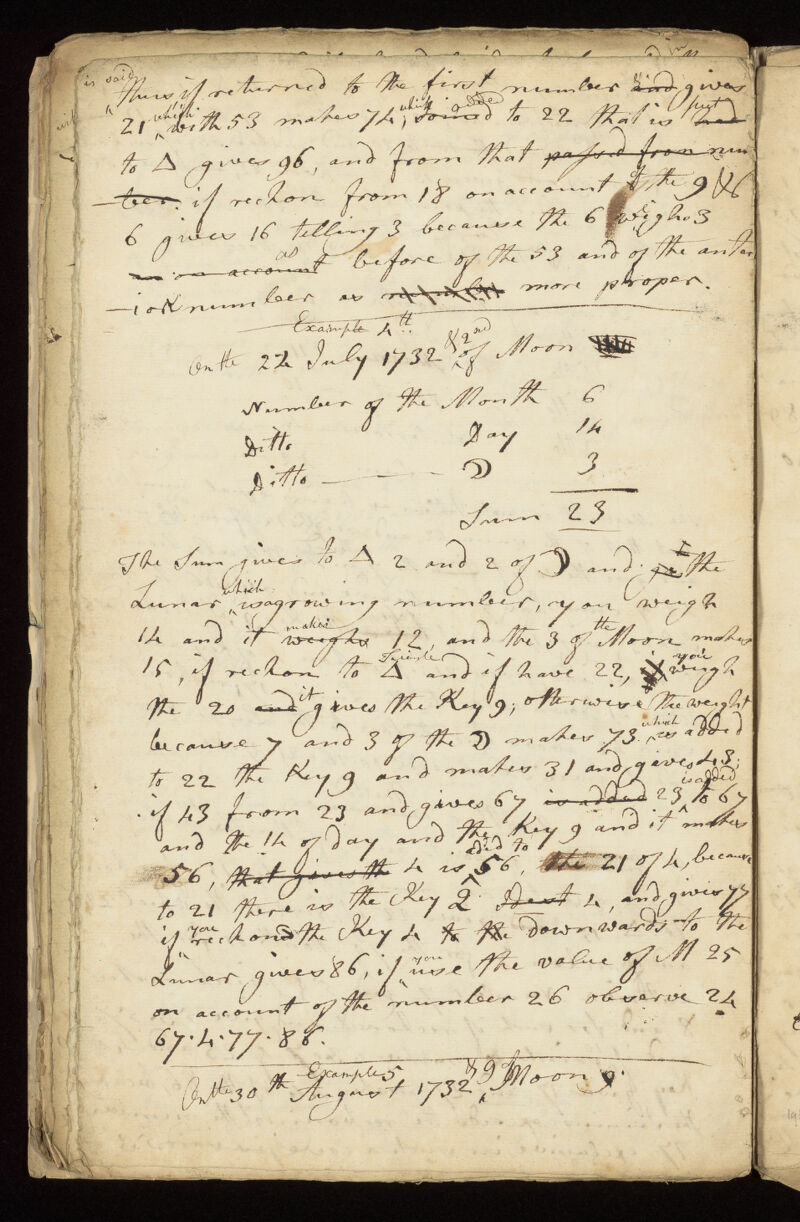 is said
Thus if returned to the first number and gives
21 which with 53 makes 74, which joined added to 22 that is just had
to Δ gives 96, and from that passed from num
ber. if reckon from 18 on account of the 9 & 6
6 gives 16 telling 3 because the 6 weighs 3
as before of the 53 and of the anter
ior number as more proper.
Example 4th
On the 22 July 1732 & 2nd of Moon
Number of the Month 6
Ditto Day 14
Ditto ☽ 3
Sum 23
The Sum gives to Δ 2 and 2 of ☽ and the
Lunar which is a growing number, you weigh
14 and it weighs makes 12, and the 3 of the Moon makes
15, if reckon to Δ and if have 22, you weigh
the 20 and it gives the Key 9; otherwise the weight
because 7 and 3 of the ☽ makes 73 which is added
to 22 the Key 9 and makes 31 and gives 43;
if 43 from 23 and gives 67 is added 23 is added to 67
and the 14 of day and the Key 9 and it makes
56, that gives th 4 is added to 56, the 21 of 4, because
to 21 there is the Key 2 4, and gives 77
if you reckon the Key 4 to the downwards to the
Lunar gives 86, if you use the value of M 25
on account of the number 26 observe 24
67·4·77·86.
Example 5
On the 30th August 1732 & 9 of Moon 9.